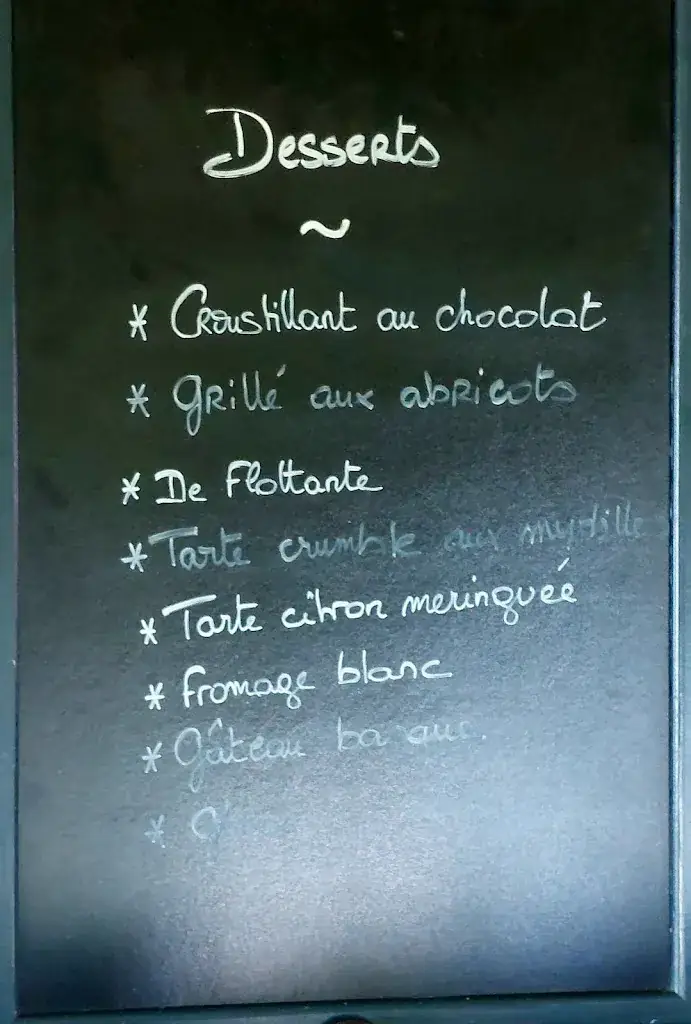 Desserts
~
* Croustillant au chocolat
* Grillé aux abricots
* De Flottante
* Tarte crumble aux myrtille
* Tarte citron meringuéé
* Fromage blanc
* Gâteau basque
*